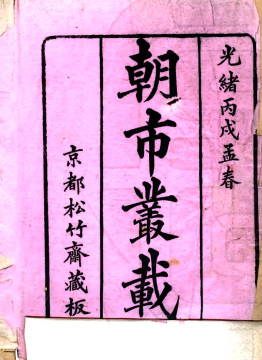 光緒丙戌孟春
朝市叢載
京都松竹齋藏板